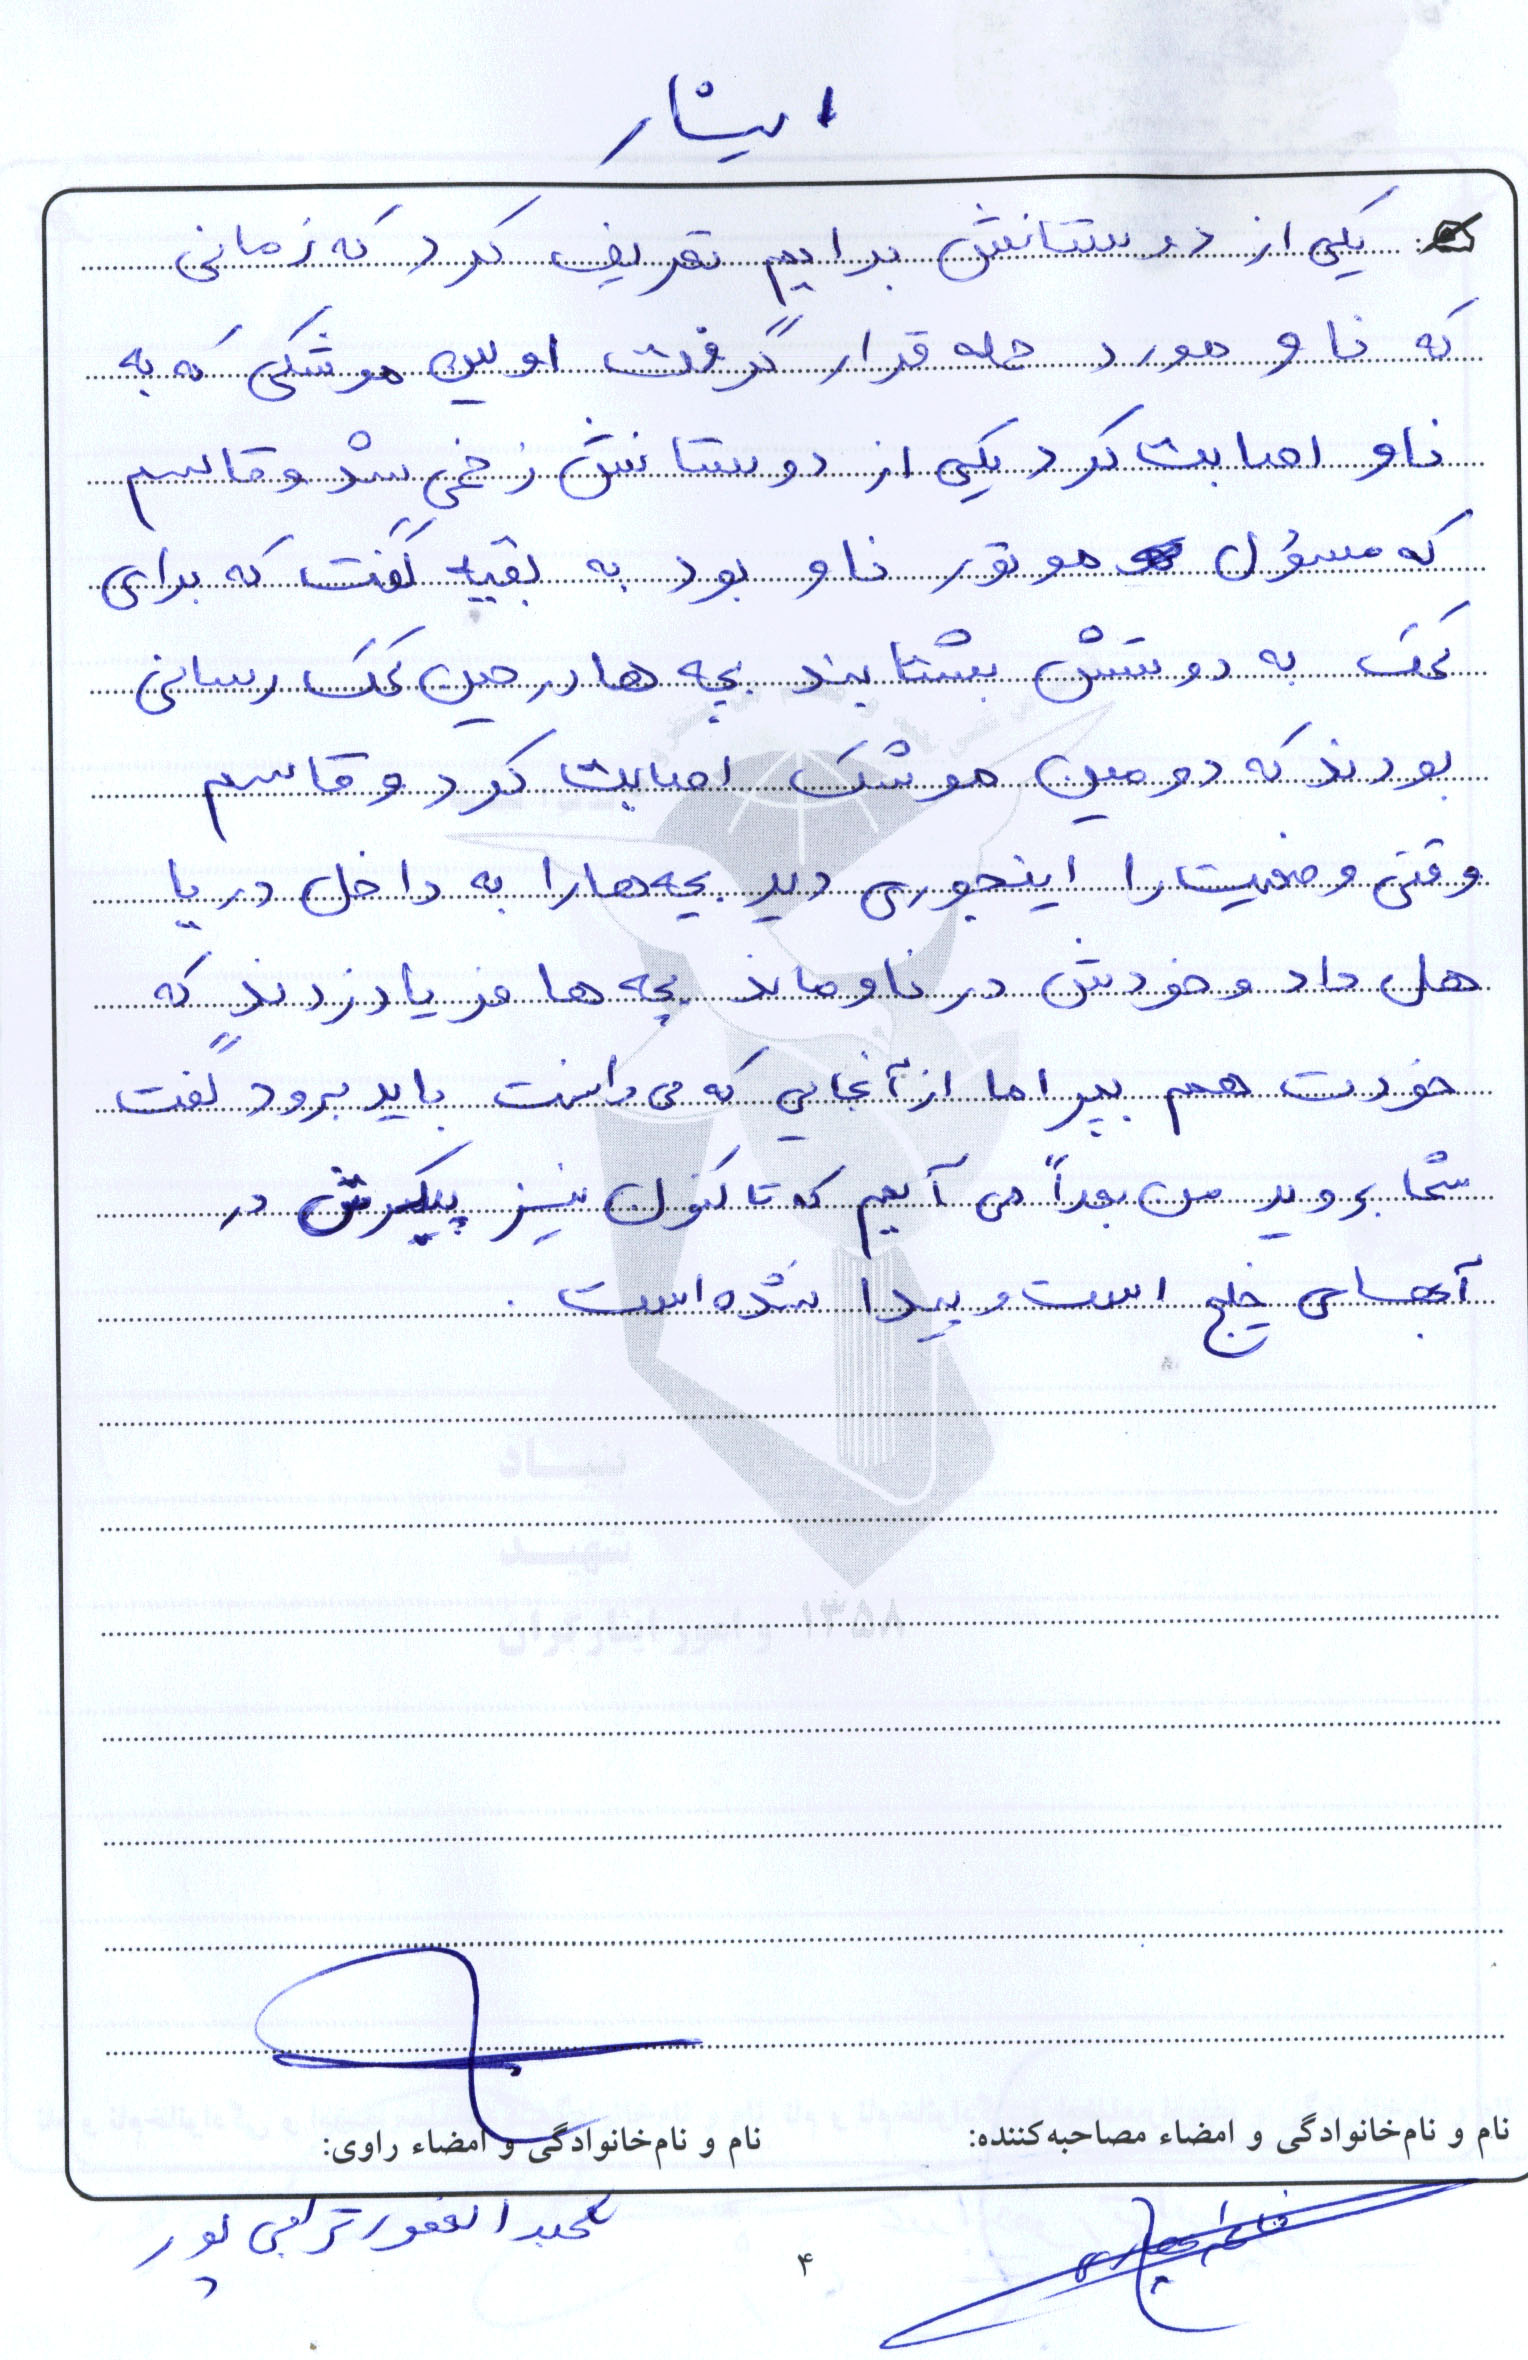 ایثار
یکی از دوستانش برایم تعریف کرد که زمانی
که ناو مورد حمله قرار گرفت اولین موشکی که به
ناو اصابت کرد یکی از دوستانش زخمی شد و قاسم
که مسؤل موتور ناو بود به بقیه گفت که برای
کمک به دوستش بشتابند بچه ها در حین کمک رسانی
بودند که دومین موشک اصابت کرد و قاسم
وقتی وضعیت را اینجوری دید بچه ها را به داخل دریا
هل داد و خودش در ناو ماند بچه ها فریاد زدند که
خودت هم بپر اما از آنجایی که می دانست باید برود گفت
شما بروید من بعداً می آیم که تا کنون نیز پیکرش در
آبهای خلیج است و پیدا نشده است .
بنیاد
شهید
و امور ایثارگران ۱۳۵۸
نام و نام‌خانوادگی و امضاء مصاحبه‌کننده: نام و نام‌خانوادگی و امضاء راوی:
عبدالغفور ترابی پور
۴